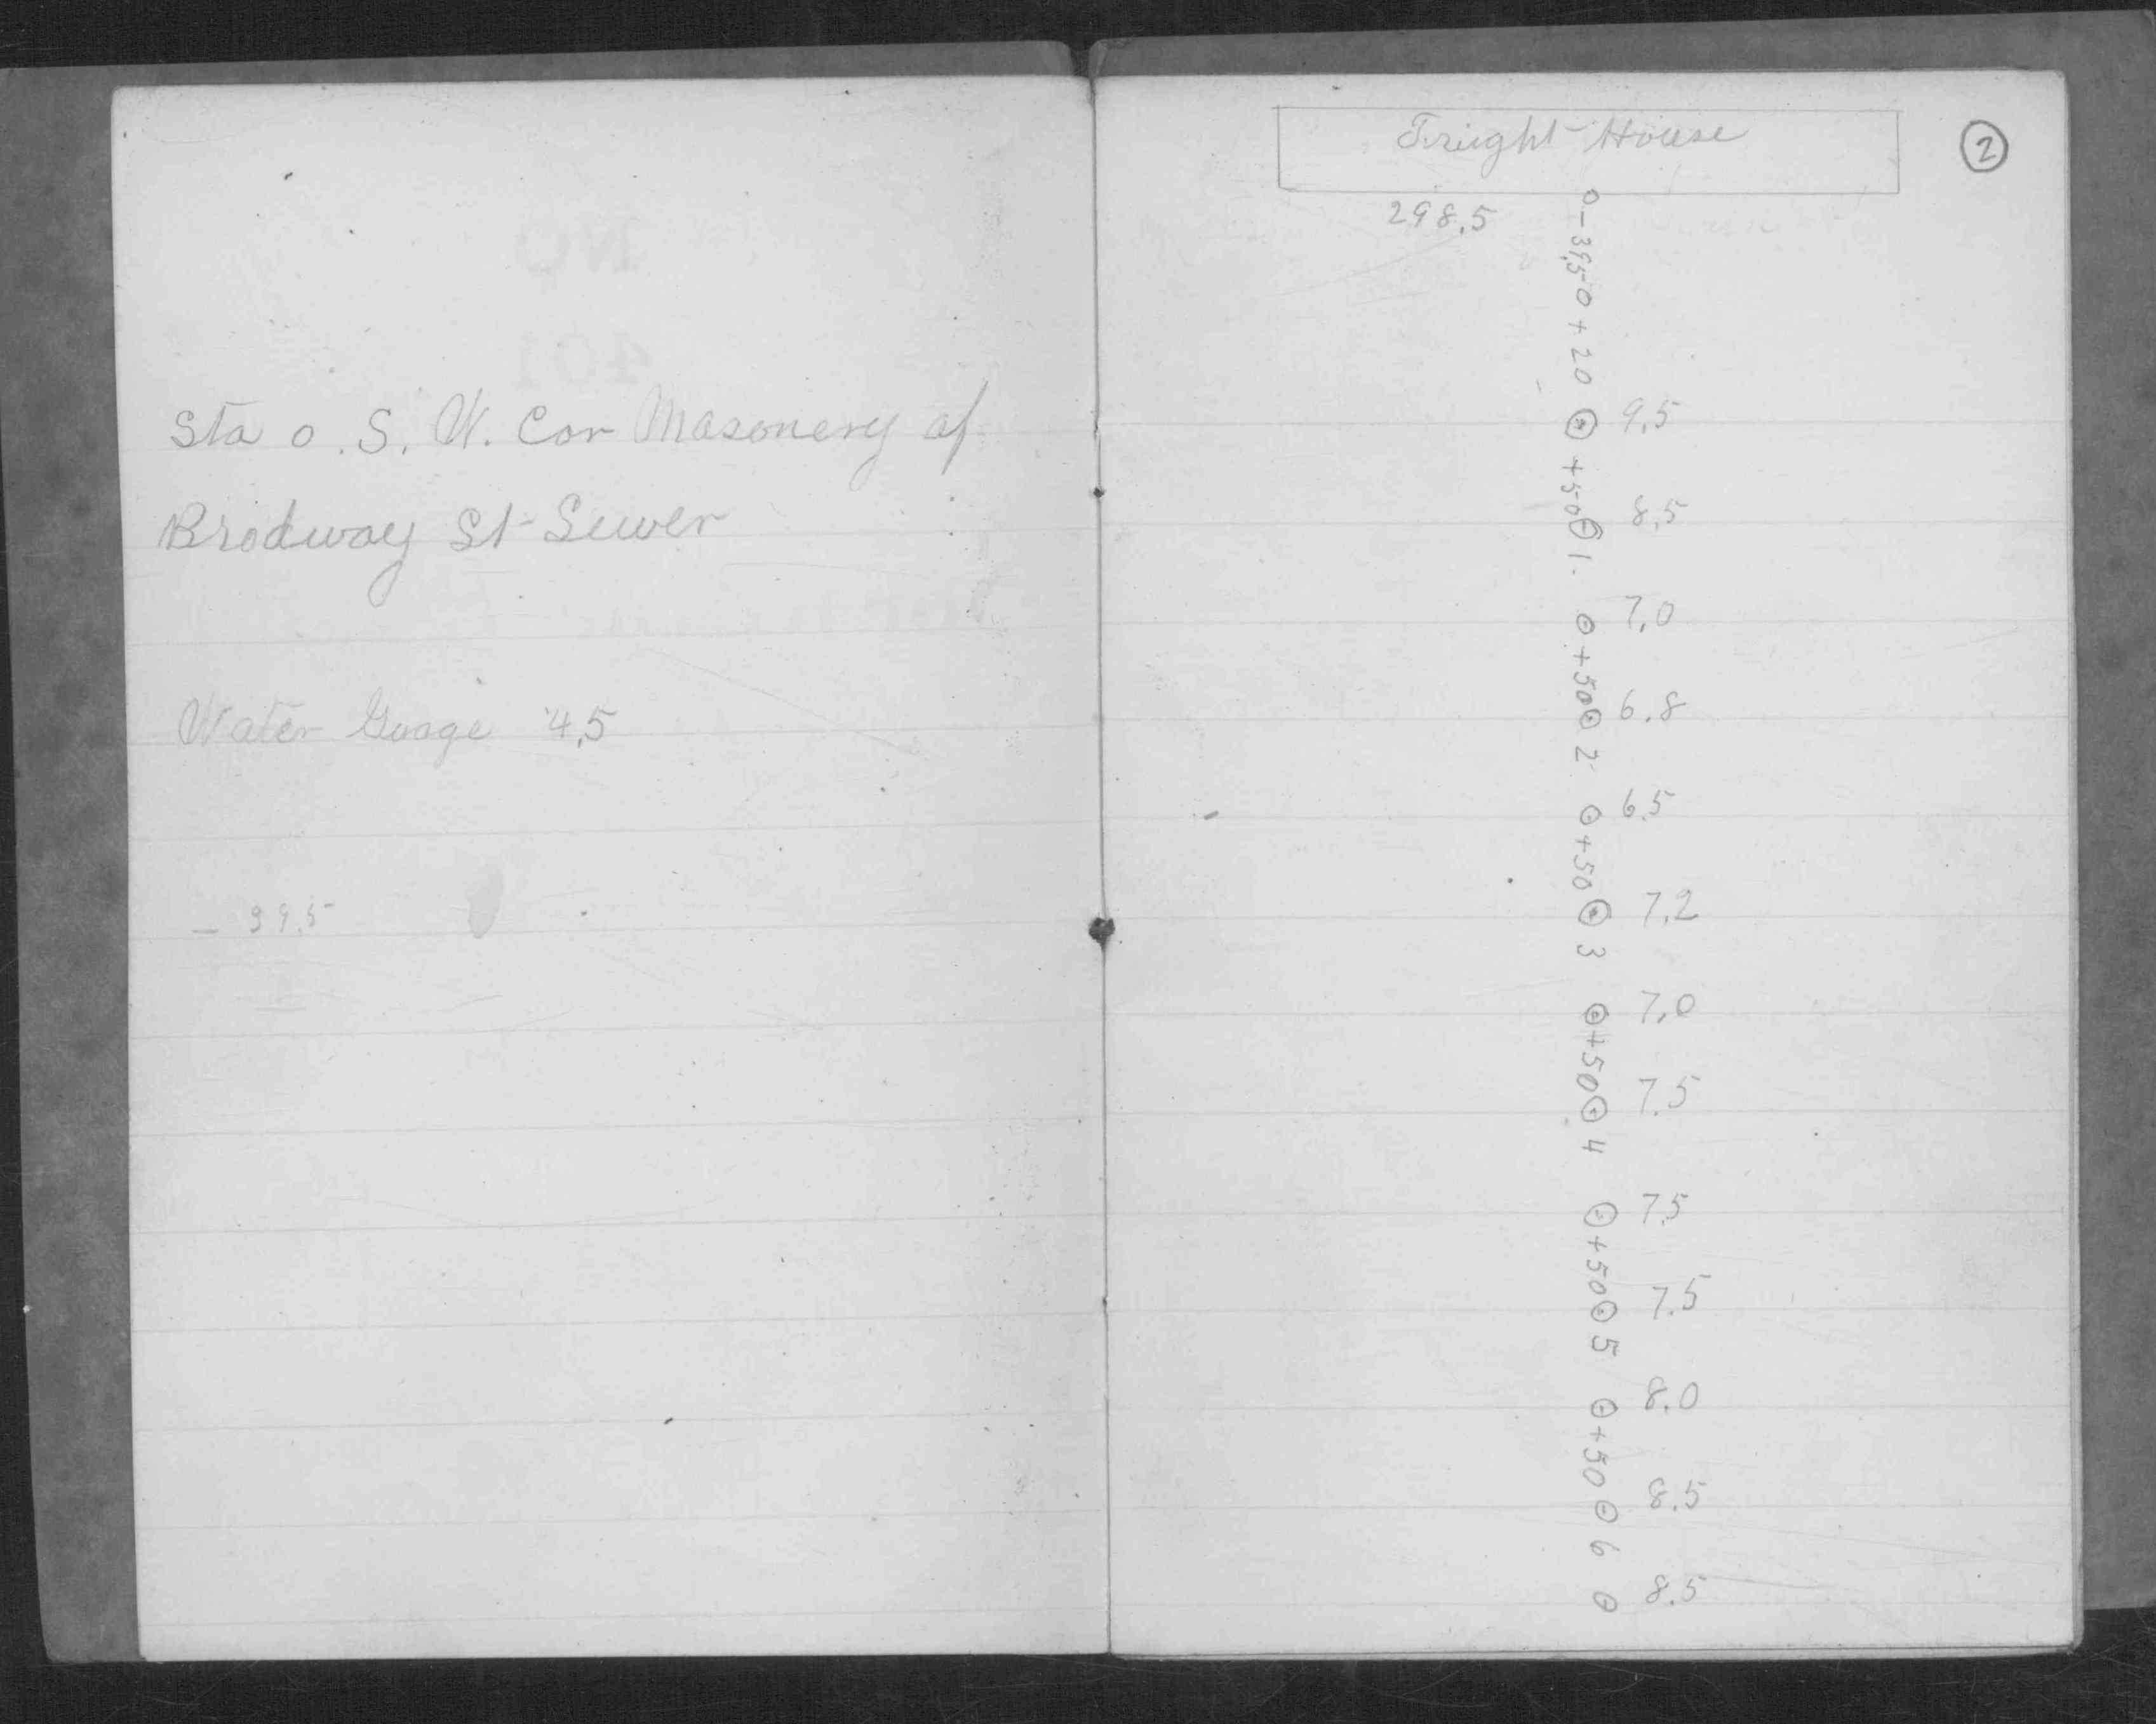 Sta 0. S. W. Cor Masonery of
Brodway St Suwer
Water Guage 4.5
- 39.5
2
Frieght House
298.5
0 - 39.5 0 + 20 9.5
+50 8.5
1. 7.0
+50 6.8
2 6.5
+50 7.2
3 7.0
+50 7.5
4 7.5
+50 7.5
5 8.0
+50 8.5
6 8.5